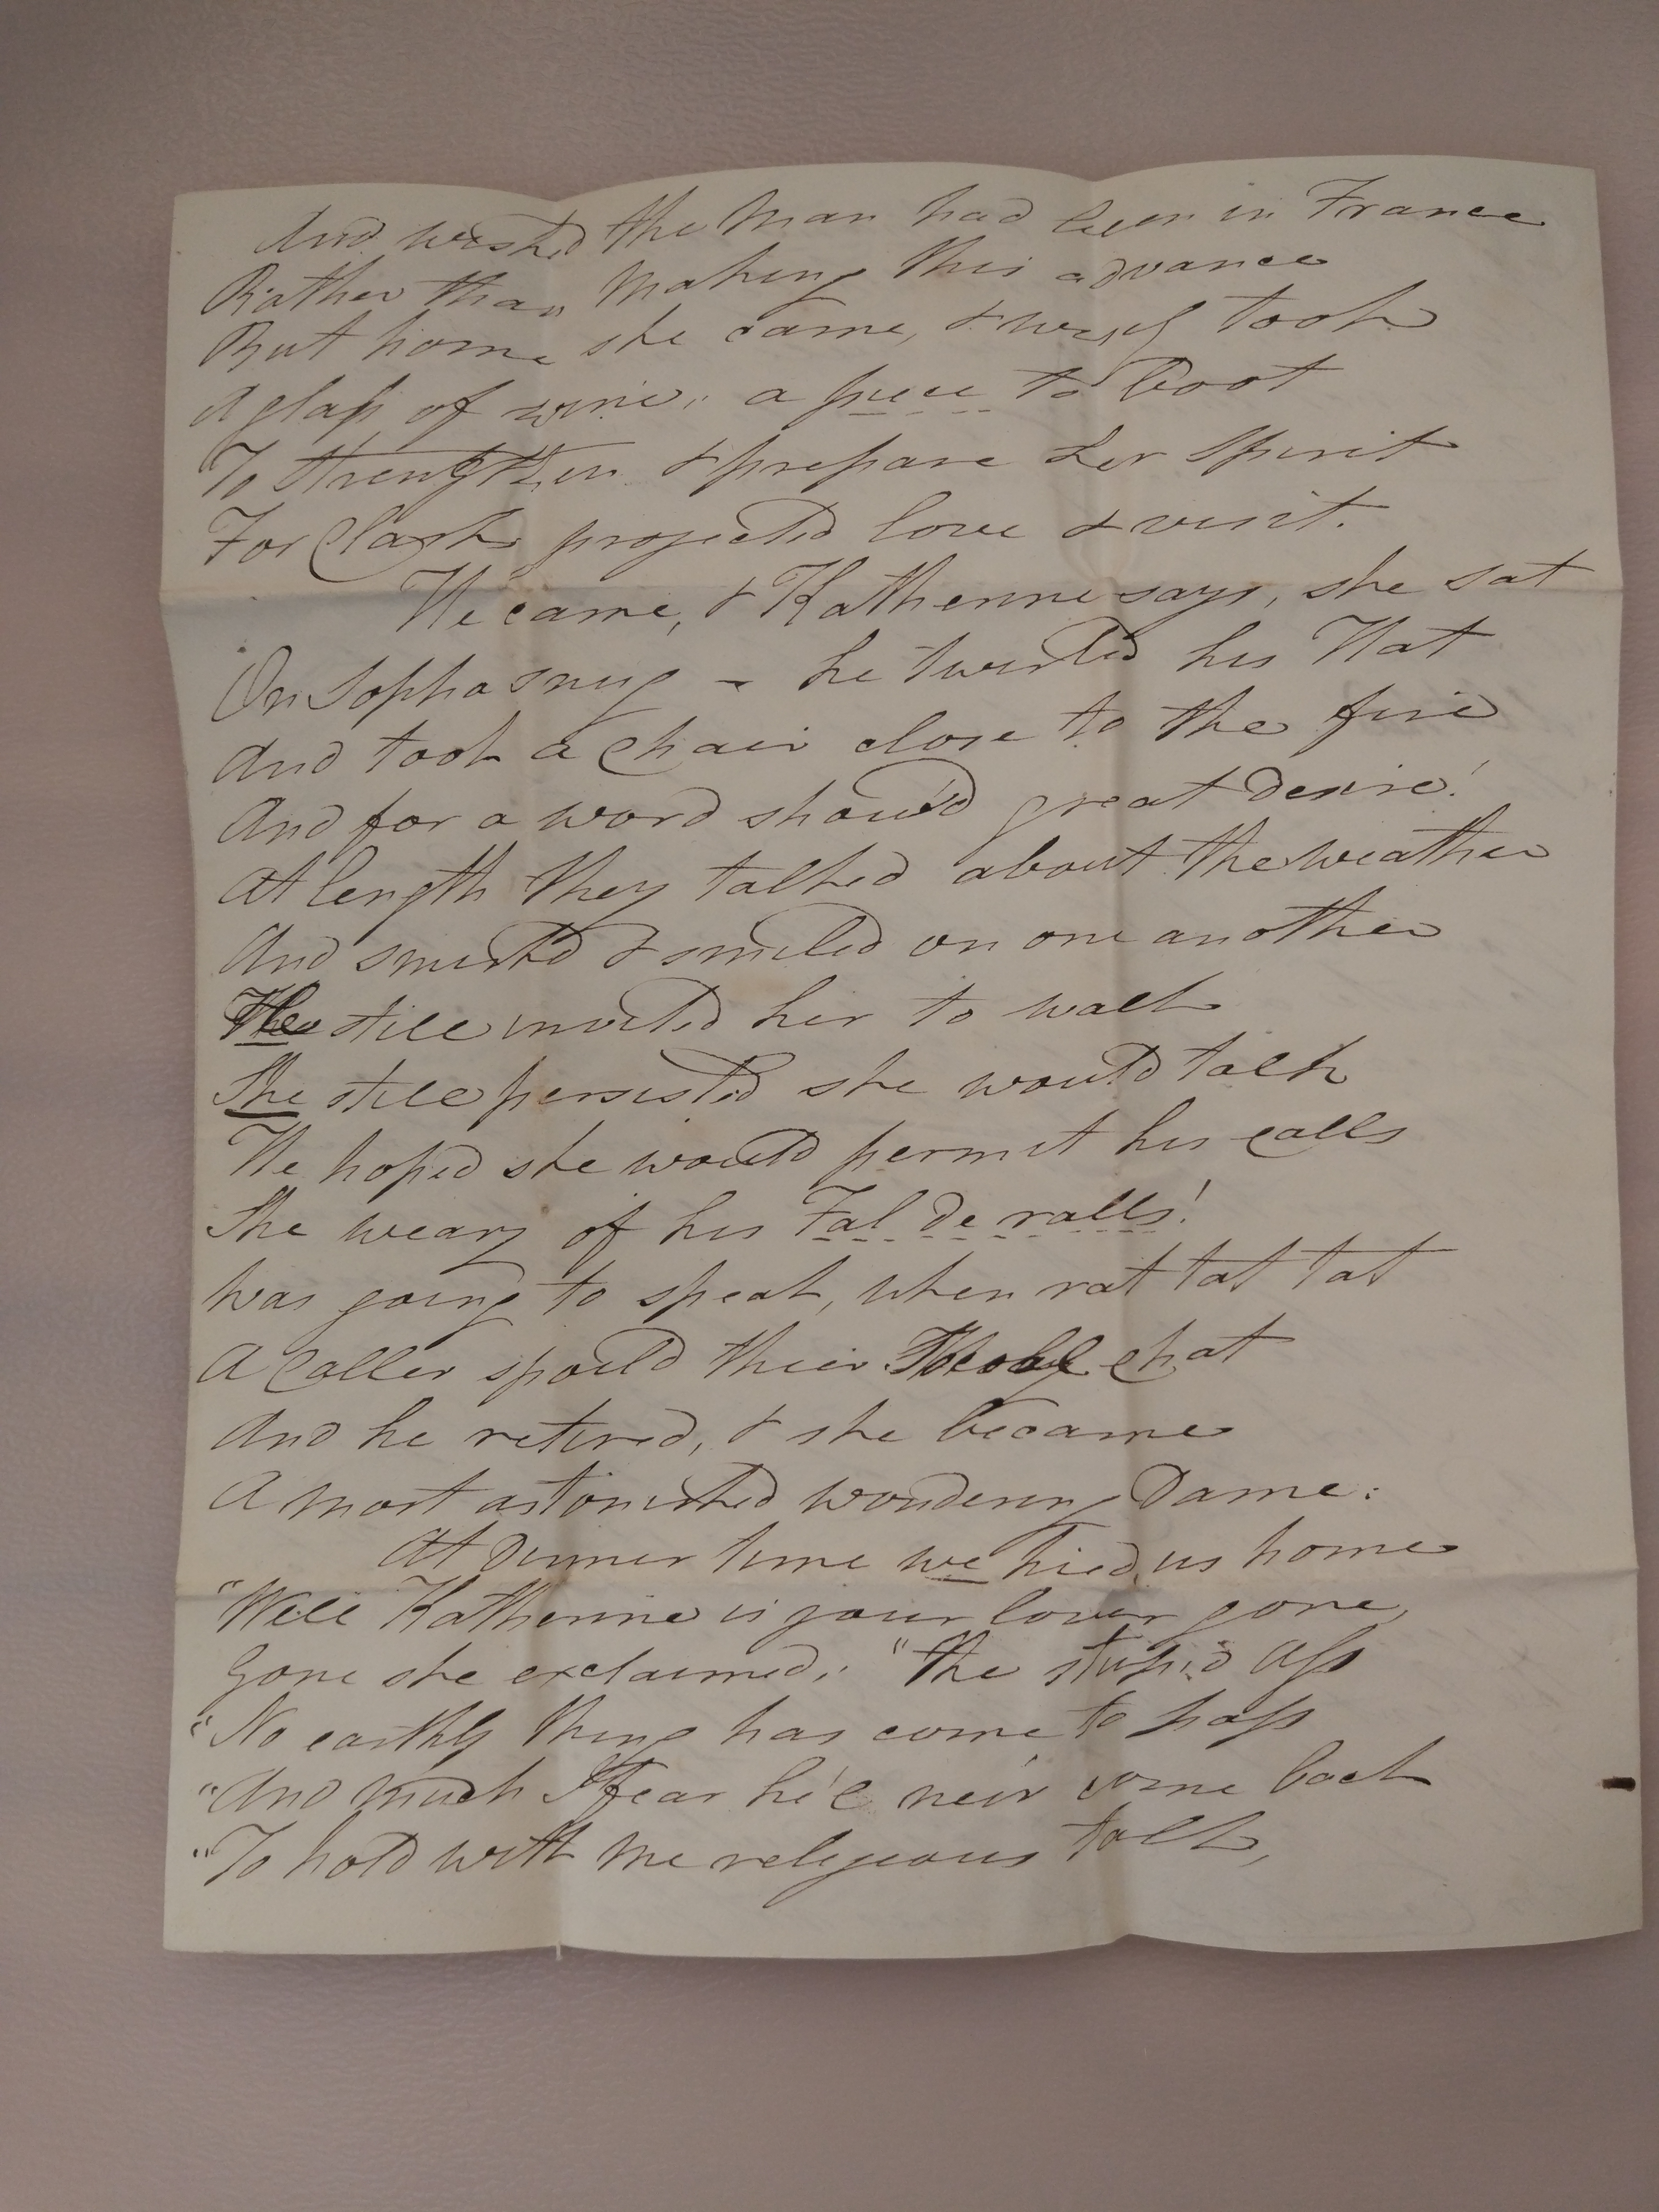 And wished the Man had been in France
Rather than Making this advance
But home she came, & wisely took
A glass of wine, a piece to boot
To strengthen & prepare her Spirit
For Clark's projected love & visit.
He came, & Katherine says, she sat
On Sopha snug - he twirled his Hat
And took a Chair close to the fire
And for a word show'd great desire!
At length they talked about the weather
And smirk'd & smiled on one another
He still invited her to walk
She still persisted she would talk
He hoped she would permit his calls
She weary of his Fal de ralls!
Was going to speak, when rat tat tat
A Caller spoild their chat
And he retired, & she became
A most astonished wondering Dame:
At Dinner time we hied us home
"Well Katherine is your lover gone,
Gone she exclaimed, "the stupid Ass
"No earthly thing has come to pass
"And much I fear he'l ne'er come back
"To hold with me religious talk,